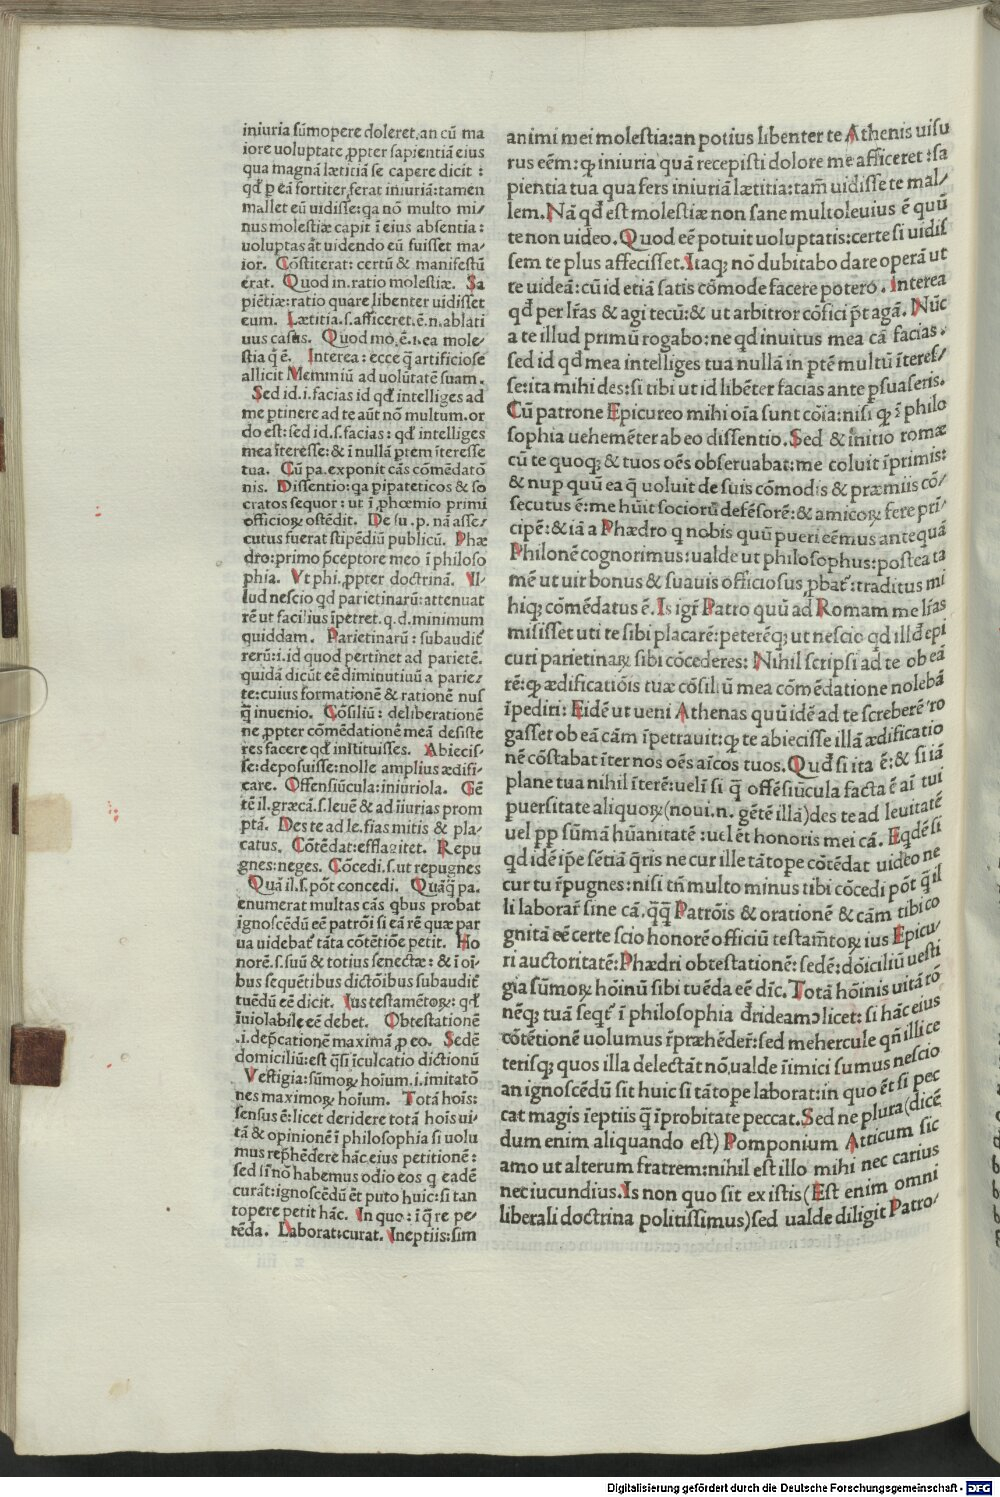 iniuria sūmopere doleret, an cū ma
iore uoluptate ꝓpter sapientiā eius
qua magnā lætitiā se capere dicit :
qđ ꝑ eā fortiter ferat iniuriā: tamen
mallet eū uidisse: qa nō multo mi/
nus molestiæ capit ī eius absentia:
uoluptas āt uidendo eū fuisset ma/
ior. Cōstiterat: certū & manifestū
erat. Quod in. ratio molestiæ. Sa
piētiæ: ratio quare libenter uidisset
eum. Lætitia .s. afficeret .ē. n. ablati
uus casus. Quod mo. ē .i. ea mole/
stia q̄ ē. Interea: ecce q̄ artificiose
allicit Memmiū ad uolūtatē suam.
Sed id .i. facias id qđ intelliges ad
me ꝑtinere ad te aūt nō multum. or
do est: sed id .s. facias: qđ intelliges
mea īteresse: & ī nullā ꝑtem īteresse
tua. Cū pa. exponit cās cōmēdatō
nis. Dissentio: qa pipateticos & so
cratos sequor: ut ī ꝓhœmio primi
officioꝝ ostēdit. De su. p. nā asse/
cutus fuerat stipēdiū publicū. Phæ
dro: primo p̄ceptore meo ī philoso
phia. Vt phi. ꝓpter doctrinā. Il/
lud nescio qd parietinarū: attenuat
rē ut facilius īpetret. q. d. minimum
quiddam. Parietinarū: subaudit̄
rerū: .i. id quod pertinet ad parietē.
quidā dicūt eē diminutiuū a parie/
te: cuius formationē & rationē nus
q̄ inuenio. Cōsiliū: deliberationē
ne ꝓpter cōmēdationē meā desiste
res facere qđ instituisses. Abiecis/
se: deposuisse: nolle amplius ædifi/
care. Offensiūcula: iniuriola. Gē
tē il. græcā .s. leuē & ad iīurias prom
ptā. Des te ad le. fias mitis & pla/
catus. Cōtēdat: efflagitet. Repu
gnes: neges. Cōcedi .s. ut repugnes
Quā il. s. pōt concedi. Quāq̄ pa.
enumerat multas cās qbus probat
ignoscēdū eē patrōi si eā rē quæ par
ua uidebat̄ tāta cōtētiōe petit. Ho
norē .s. suū & totius senectæ: & ī oī/
bus sequētibus dictōibus subaudit̄
tuēdū eē dicit. Ius testamētoꝝ: qđ
īuiolabile eē debet. Obtestationē
.i. dep̄cationē maximā ꝓ eo. Sedē
domiciliū: est q̄si īculcatio dictionū
Vestigia: sūmoꝝ hoium .i. imitatō
nes maximoꝝ hoium. Totā hoīs:
sensus ē: licet deridere totā hoīs ui/
tā & opinionē ī philosophia si uolu
mus rep̄hēdere hāc eius petitionē:
sed si nō habemus odio eos q eadē
curāt: ignoscēdū ēt puto huic: si tan
topere petit hāc. In quo: ī q̄ re pe/
tēda. Laborat: curat. Ineptiis: sim
animi mei molestia: an potius libenter te Athenis uisu
rus eēm: ꝙ iniuria quā recepisti dolore me afficeret: sa
pientia tua qua fers iniuriā lætitia: tam̄ uidisse te mal/
lem. Nā qđ est molestiæ non sane multo leuius ē quū
te non uideo. Quod eē potuit uoluptatis: certe si uidis
sem te plus affecisset. Itaq; nō dubitabo dare operā ut
te uideā: cū id etiā satis cōmode facere potero. Interea
qđ per lr̄as & agi tecū: & ut arbitror cōfici p̄t agā. Nūc
a te illud primū rogabo: ne qd inuitus mea cā facias.
sed id qđ mea intelliges tua nullā in ꝑtē multū īteres/
se: ita mihi des: si tibi ut id libēter facias ante ꝑsuaseris.
Cū patrone Epicureo mihi oīa sunt cōia: nisi ꝙ ī philo
sophia uehemēter ab eo dissentio. Sed & initio romæ
cū te quoq; & tuos oēs obseruabat: me coluit īprimis:
& nup quū ea q̄ uoluit de suis cōmodis & præmiis cō/
secutus ē: me hūit suorū defēsorē: & amicoꝝ fere pri/
cipē: & iā a Phædro q nobis quū pueri eēmus ante quā
Philonē cognorimus: ualde ut philosophus: postea ta
mē ut uir bonus & suauis officiosus ꝓbat̄: traditus mi
hiq; cōmēdatus ē. Is igr̄ Patro quū ad Romam me lr̄as
misisset uti te sibi placarē: peterēq; ut nescio qd illđ epi
curi parietinaꝝ sibi cōcederes: Nihil scripsi ad te ob eā
rē: ꝙ ædificatiōis tuæ cōsiliū mea cōmēdatione nolebā
īpediri: Eidē ut ueni Athenas quū idē ad te screberē ro
gasset ob eā cām īpetrauit: ꝙ te abiecisse illā ædificatio
nē cōstabat īter nos oēs aīcos tuos. Quđ si ita ē: & si iā
plane tua nihil īterē: uelī si q̄ offēsiūcula facta ē aī tui
puersitate aliquoꝝ (noui .n. gētē illā) des te ad leuitatē
uel pp sūmā hūanitatē: uel ēt honoris mei cā. Eqdē si
qd idē ip̄e sētiā q̄ris nec cur ille tātope cōtēdat uideo ne
cur tu r̄pugnes: nisi tn̄ multo minus tibi cōcedi pōt q̄ il
li laborar̄ sine cā. q̄q̄ Patrōis & orationē & cām tibi co
gnitā eē certe scio honorē officiū testam̄toꝝ ius Epicu/
ri auctoritatē: Phædri obtestationē: sedē: dōiciliū uesti
gia sūmoꝝ hōinū sibi tuēda eē dīc. Totā hōinis uitā tō
nēq; tuā seqt̄ ī philosophia đrideamɔ licet: si hāc eius
cōtētionē uolumus r̄præhēder̄: sed mehercule qn̄ illi ce
terisq; quos illa delectāt nō ualde īimici sumus nescio
an ignoscēdū sit huic si tātope laborat: in quo ēt si pec
cat magis īeptiis q̄ īprobitate peccat. Sed ne plura (dicē
dum enim aliquando est) Pomponium Atticum sic
amo ut alterum fratrem: nihil est illo mihi nec carius
nec iucundius. Is non quo sit ex istis (Est enim omni
liberali doctrina politissimus) sed ualde diligit Patro/
Digitalisierung gefördert durch die Deutsche Forschungsgemeinschaft - DFG